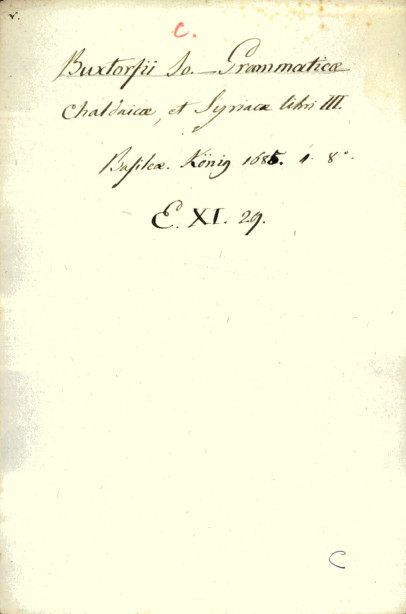 v.
C.
Buxtorfii Jo. — Grammaticæ
Chaldaicæ, et Syriacæ libri III.
Basileæ. König 1685. 8°.
E. XI. 29.
C